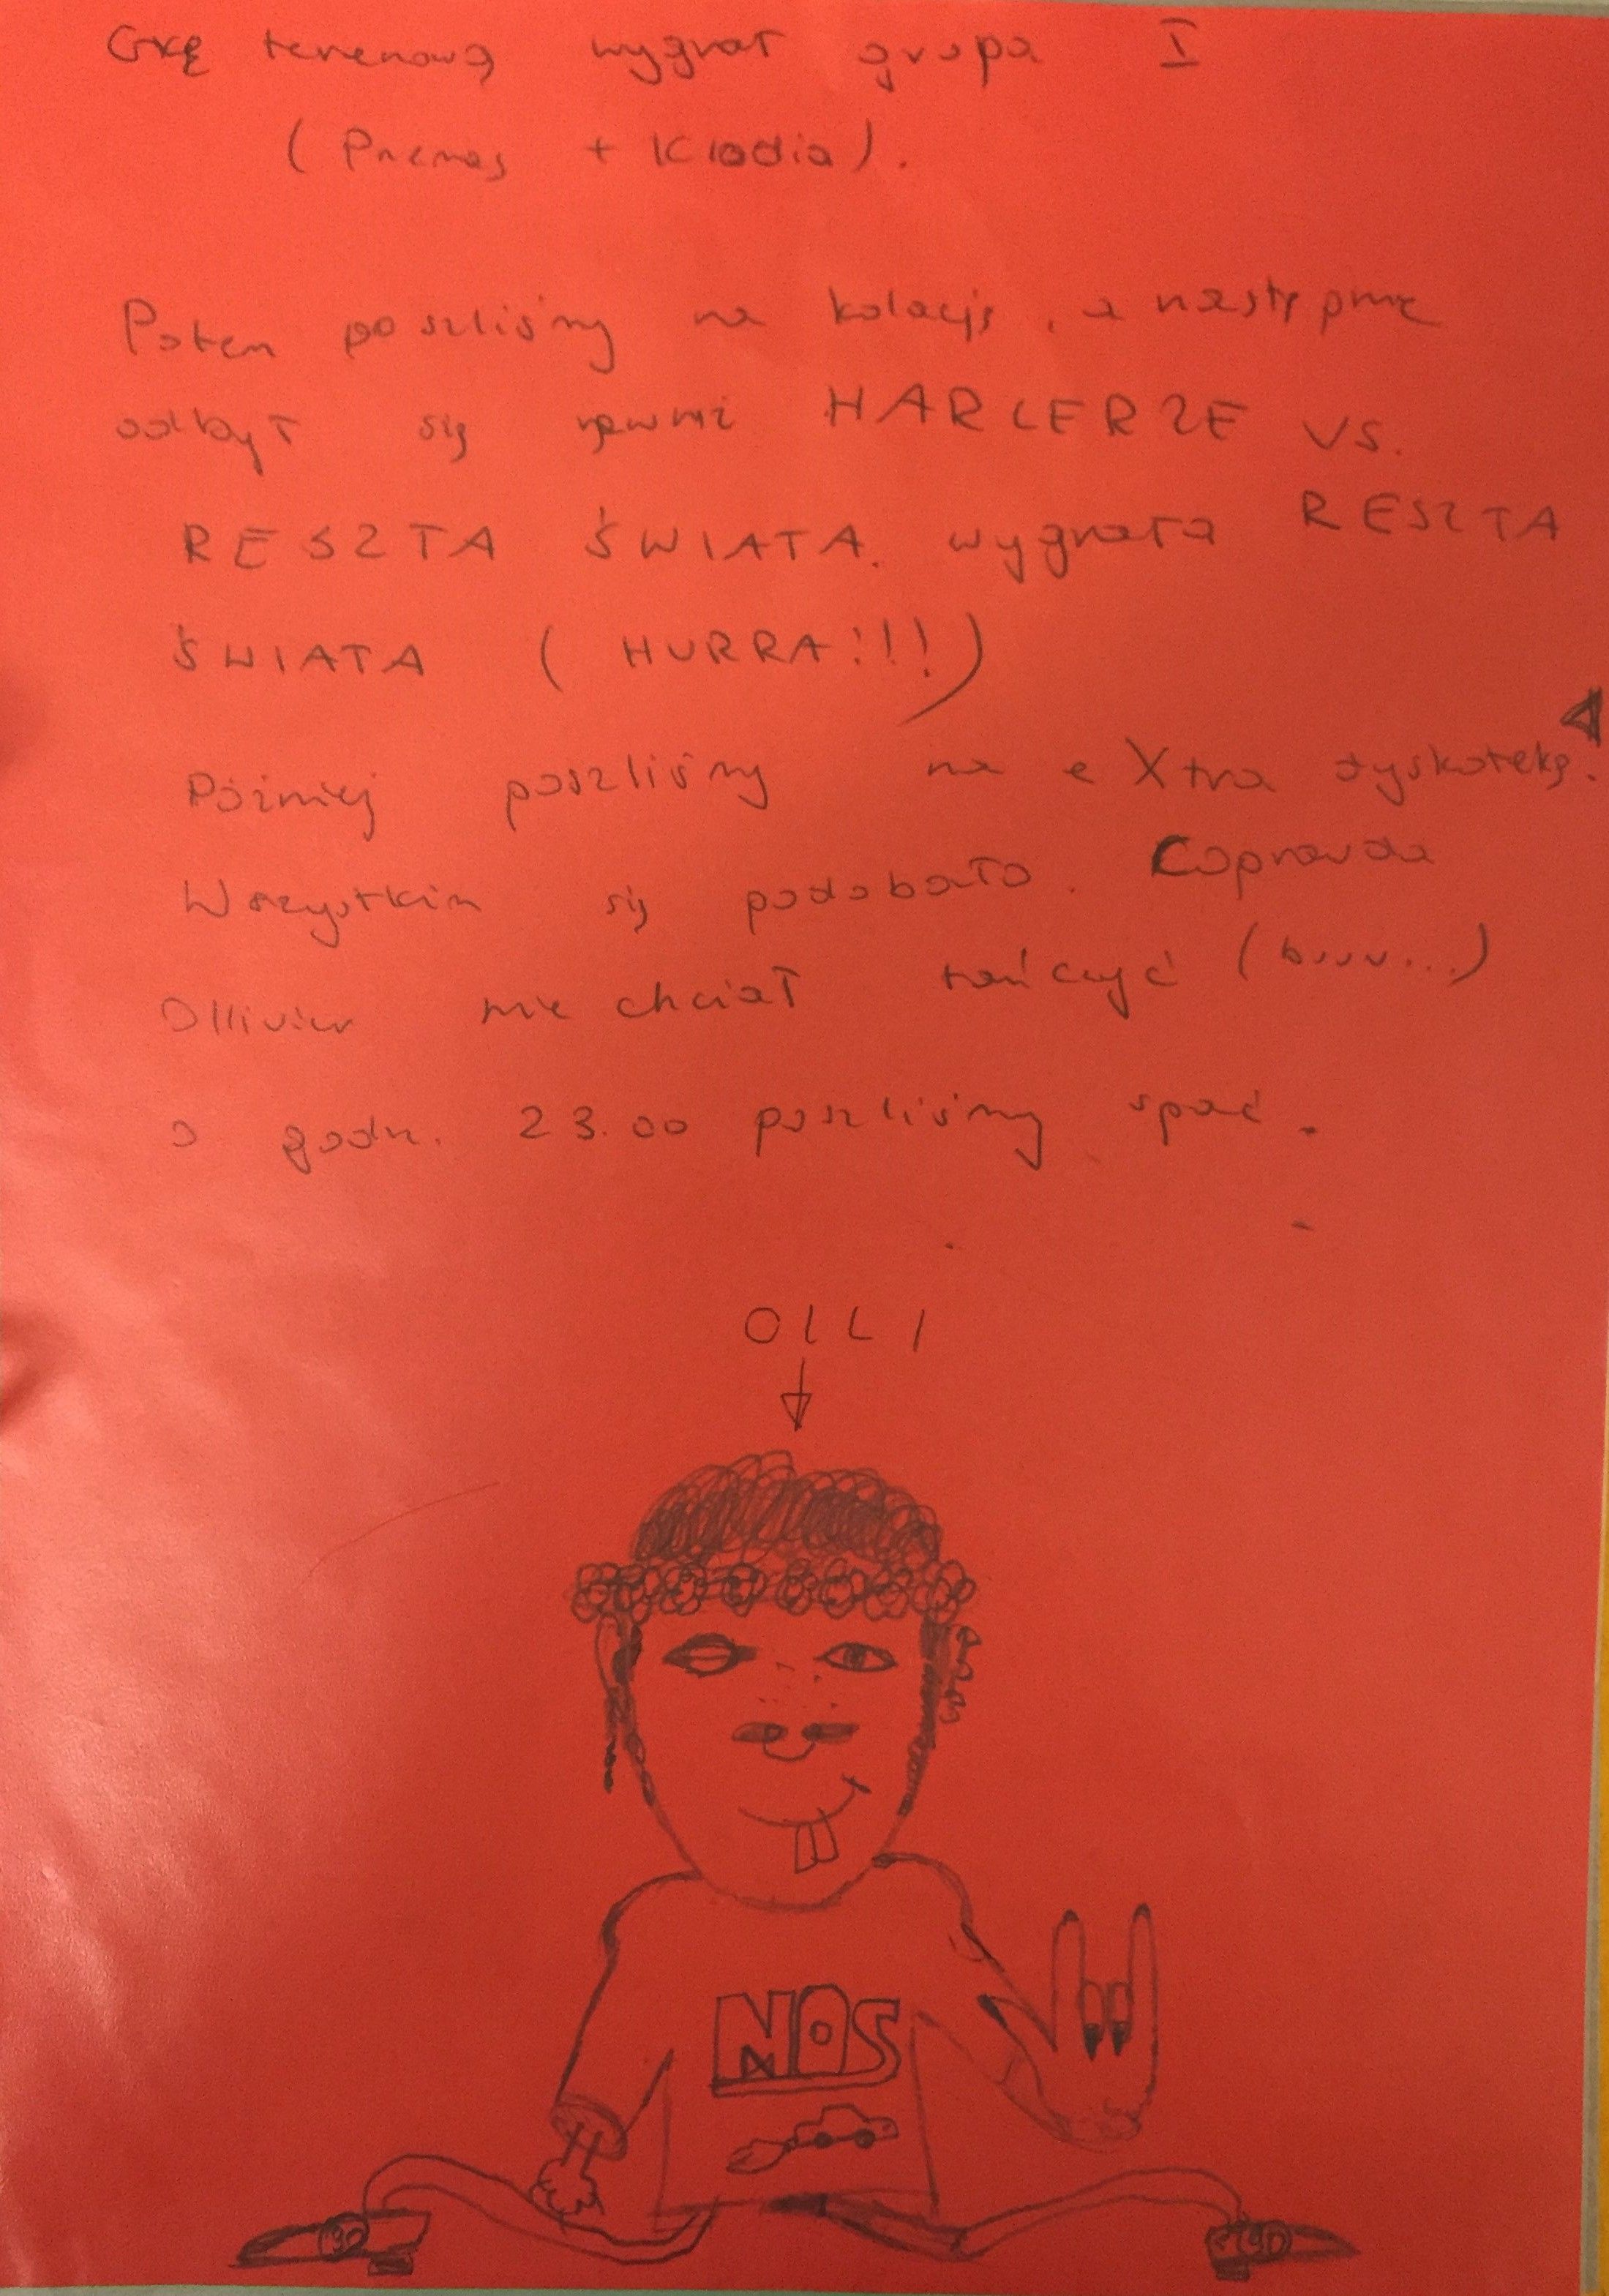 Grę terenową wygrał grupa I
(Przemas + Klaudia).
Potem poszliśmy na kolację, a następnie
odbył się HARCERZE VS.
RESZTA ŚWIATA. wygrała RESZTA
ŚWIATA (HURRA!!!)
Później poszliśmy na eXtra dyskotekę.
Wszystkim się podobało. Coprawda
Ollivier nie chciał tańczyć (buuu...)
o godz. 23.00 poszliśmy spać.
OLLI
NOS